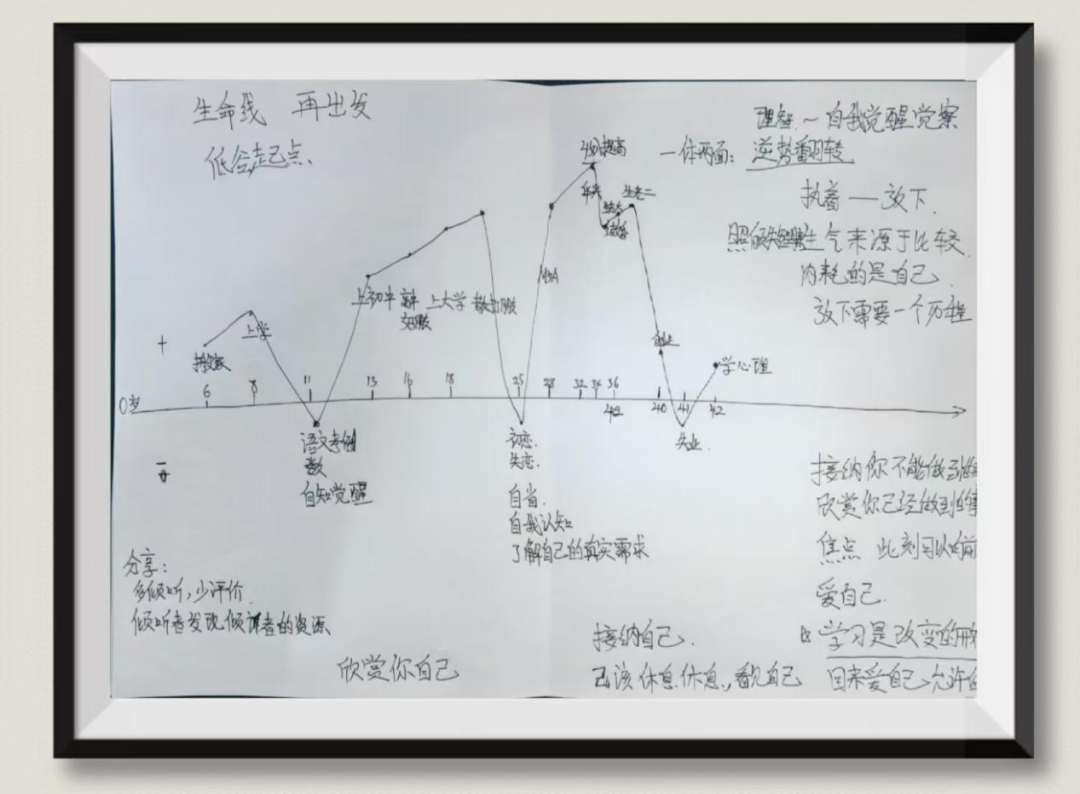 生命线 再出发
低谷起点
理智～自我觉醒觉察
一体两面：逆势翻转
执着—放下.
生气来源于比较.
内耗的是自己.
放下需要一个历程
提高
生老二
结婚
上学
上初中 上大学
创业
学心理
+
0岁
6 8 11 13 16 18 25 28 32 34 36 40 41 42
42
-
语文考倒
数
自知觉醒
初恋.
失恋.
自省.
自我认知
了解自己的真实需求
失业.
接纳你不能做到的
欣赏你已经做到的
焦点 此刻可以
爱自己.
分享：
多倾听，少评价.
倾听者发现倾诉者的资源
接纳自己.
学习是改变的
欣赏你自己
己该休息休息，看见自己
回来爱自己，允许